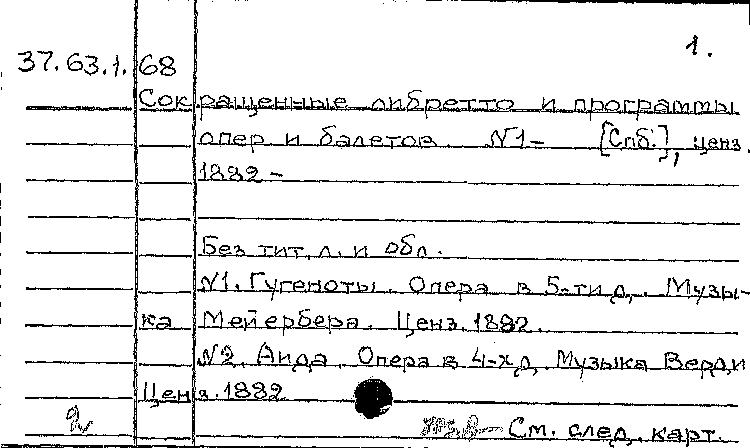 1.
37.63.1.68
Сокращенные либретто и программы
опер и балетов. №1- [Спб.], ценз.
1882 -
Без тит. л. и обл.
№1. Гугеноты. Опера в 5-ти д. Музы-
ка Мейербера. Ценз. 1882.
№2. Аида. Опера в 4-х д. Музыка Верди
Ценз. 1882
См. след. карт.